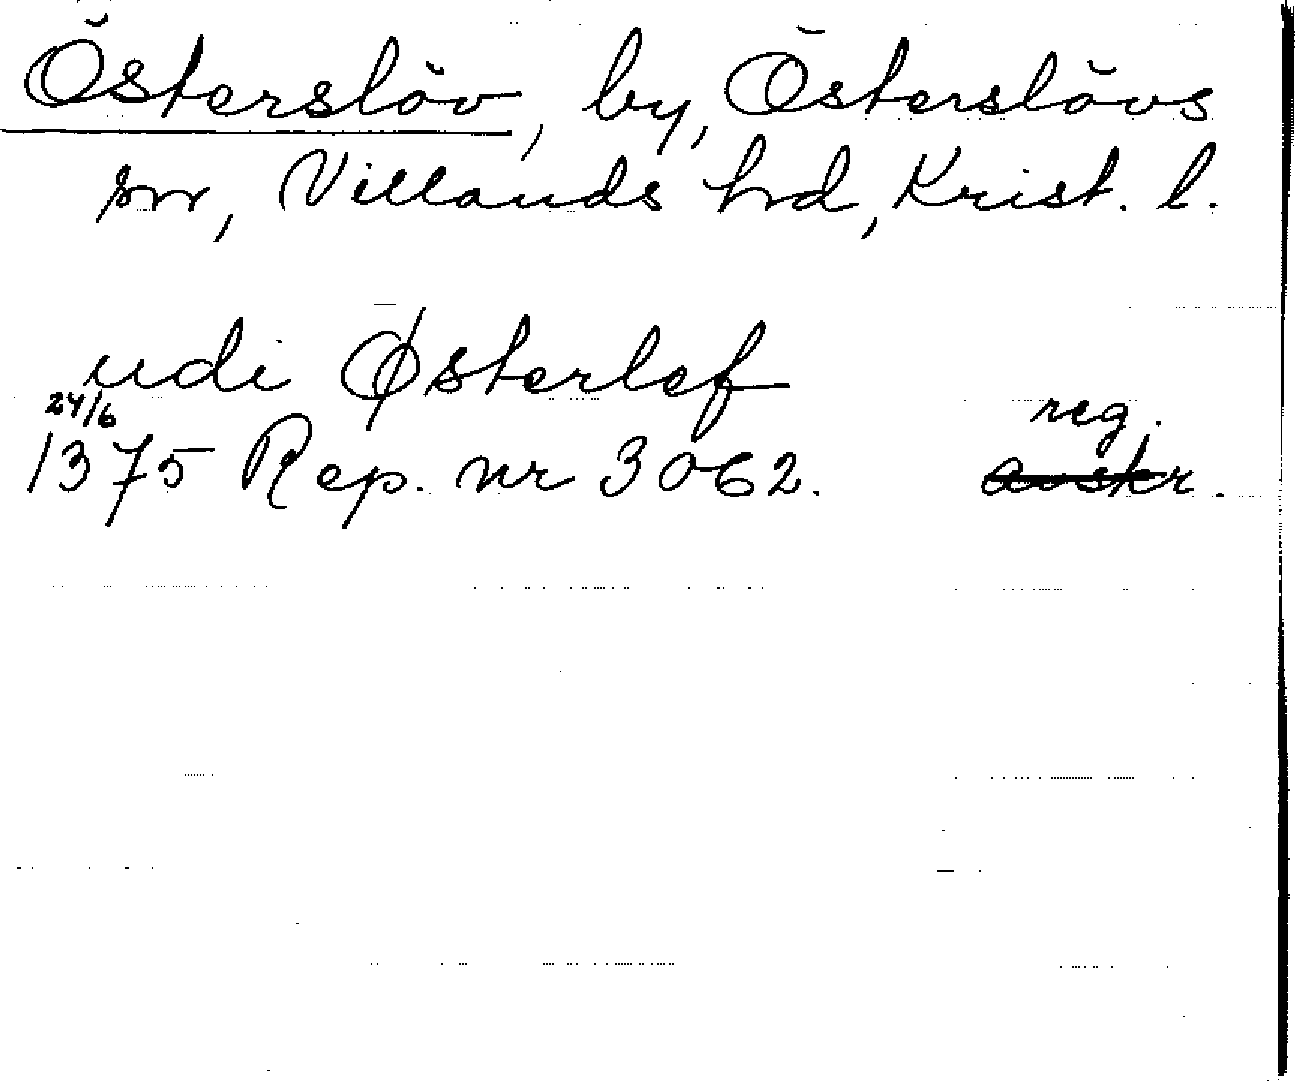 Österslöv, by, Österslövs
sn, Villands hd, Krist. l.
udi Østerlef
24/6 reg.
1375 Rep. nr 3062. avskr.